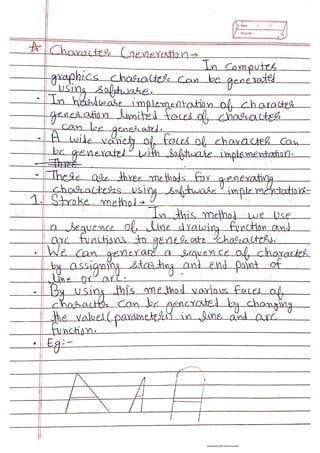 ☆ Character Generation →
In Computer
graphics character can be generated
using software.
• In hardware implementation of character
generation limited faces of character
can be generated.
• A wide variety of faces of character can
be generated with software implementation.
Three
• There are three methods for generating
characters using software implementation:-
1. Stroke method →
In this method we use
a sequence of line drawing function and
arc functions to generate characters.
• We can generate a sequence of character
by assigning starting and end point of
line or arc.
• By using this method various faces of
character can be generated by changing
the values (parameters) in line and arc
function.
• Eg:-
A A A